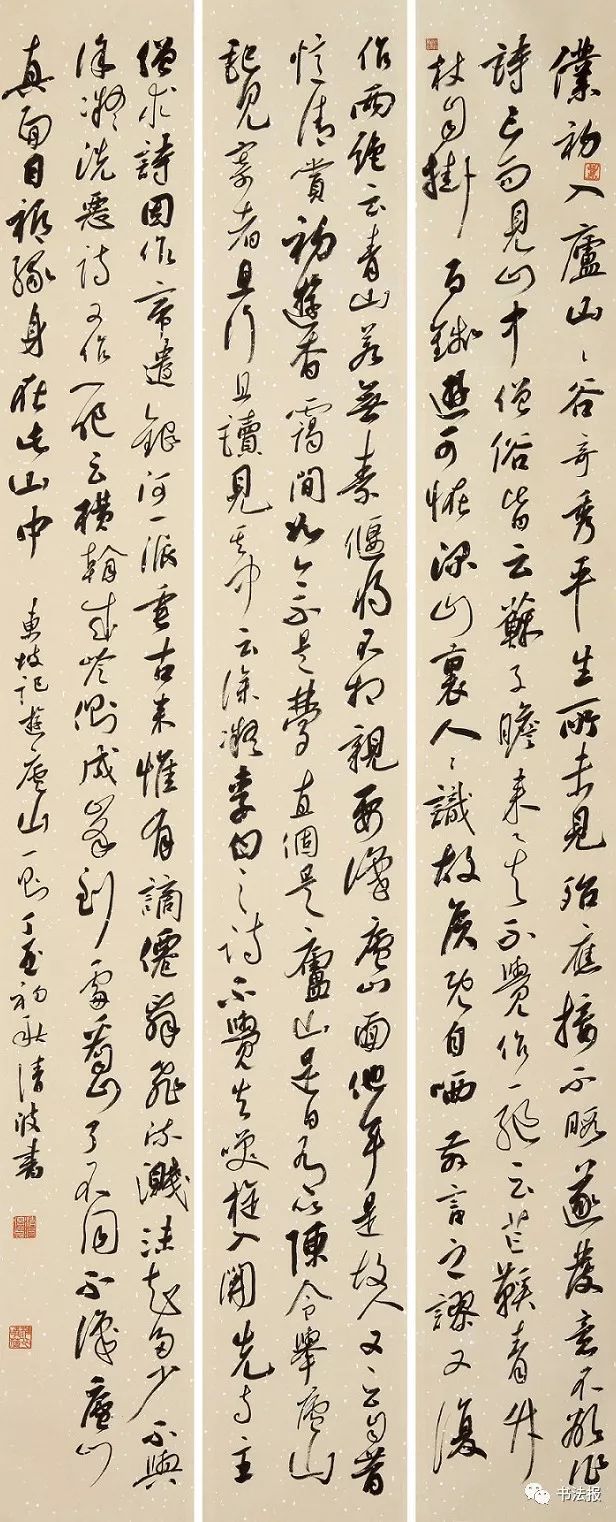 僕初入廬山〻谷奇秀平生所未見殆應接不暇遂發意不欲作
詩已而見山中僧俗皆云蘇子瞻來矣不覺作一絕云芒鞵青竹
杖自掛百錢遊可怪深山裏人〻識故侯既自哂前言之謬又復
作兩絕云青山若無素偃蹇不相親要識廬山面他年是故人又云自昔
憶清賞初遊杳靄間如今不是夢真個是廬山是日有以陳令舉廬山
記見寄者且行且讀見其中云徐凝李白之詩不覺失笑旋入開先寺主
僧求詩因作帝遣銀河一派垂古來惟有謫僊辭飛流濺沫知多少不與
徐凝洗惡詩又作一絕云橫看成嶺側成峰到處看山了不同不識廬山
真面目祇緣身在此山中 東坡記遊廬山一則 丁酉初秋清波書
书法报